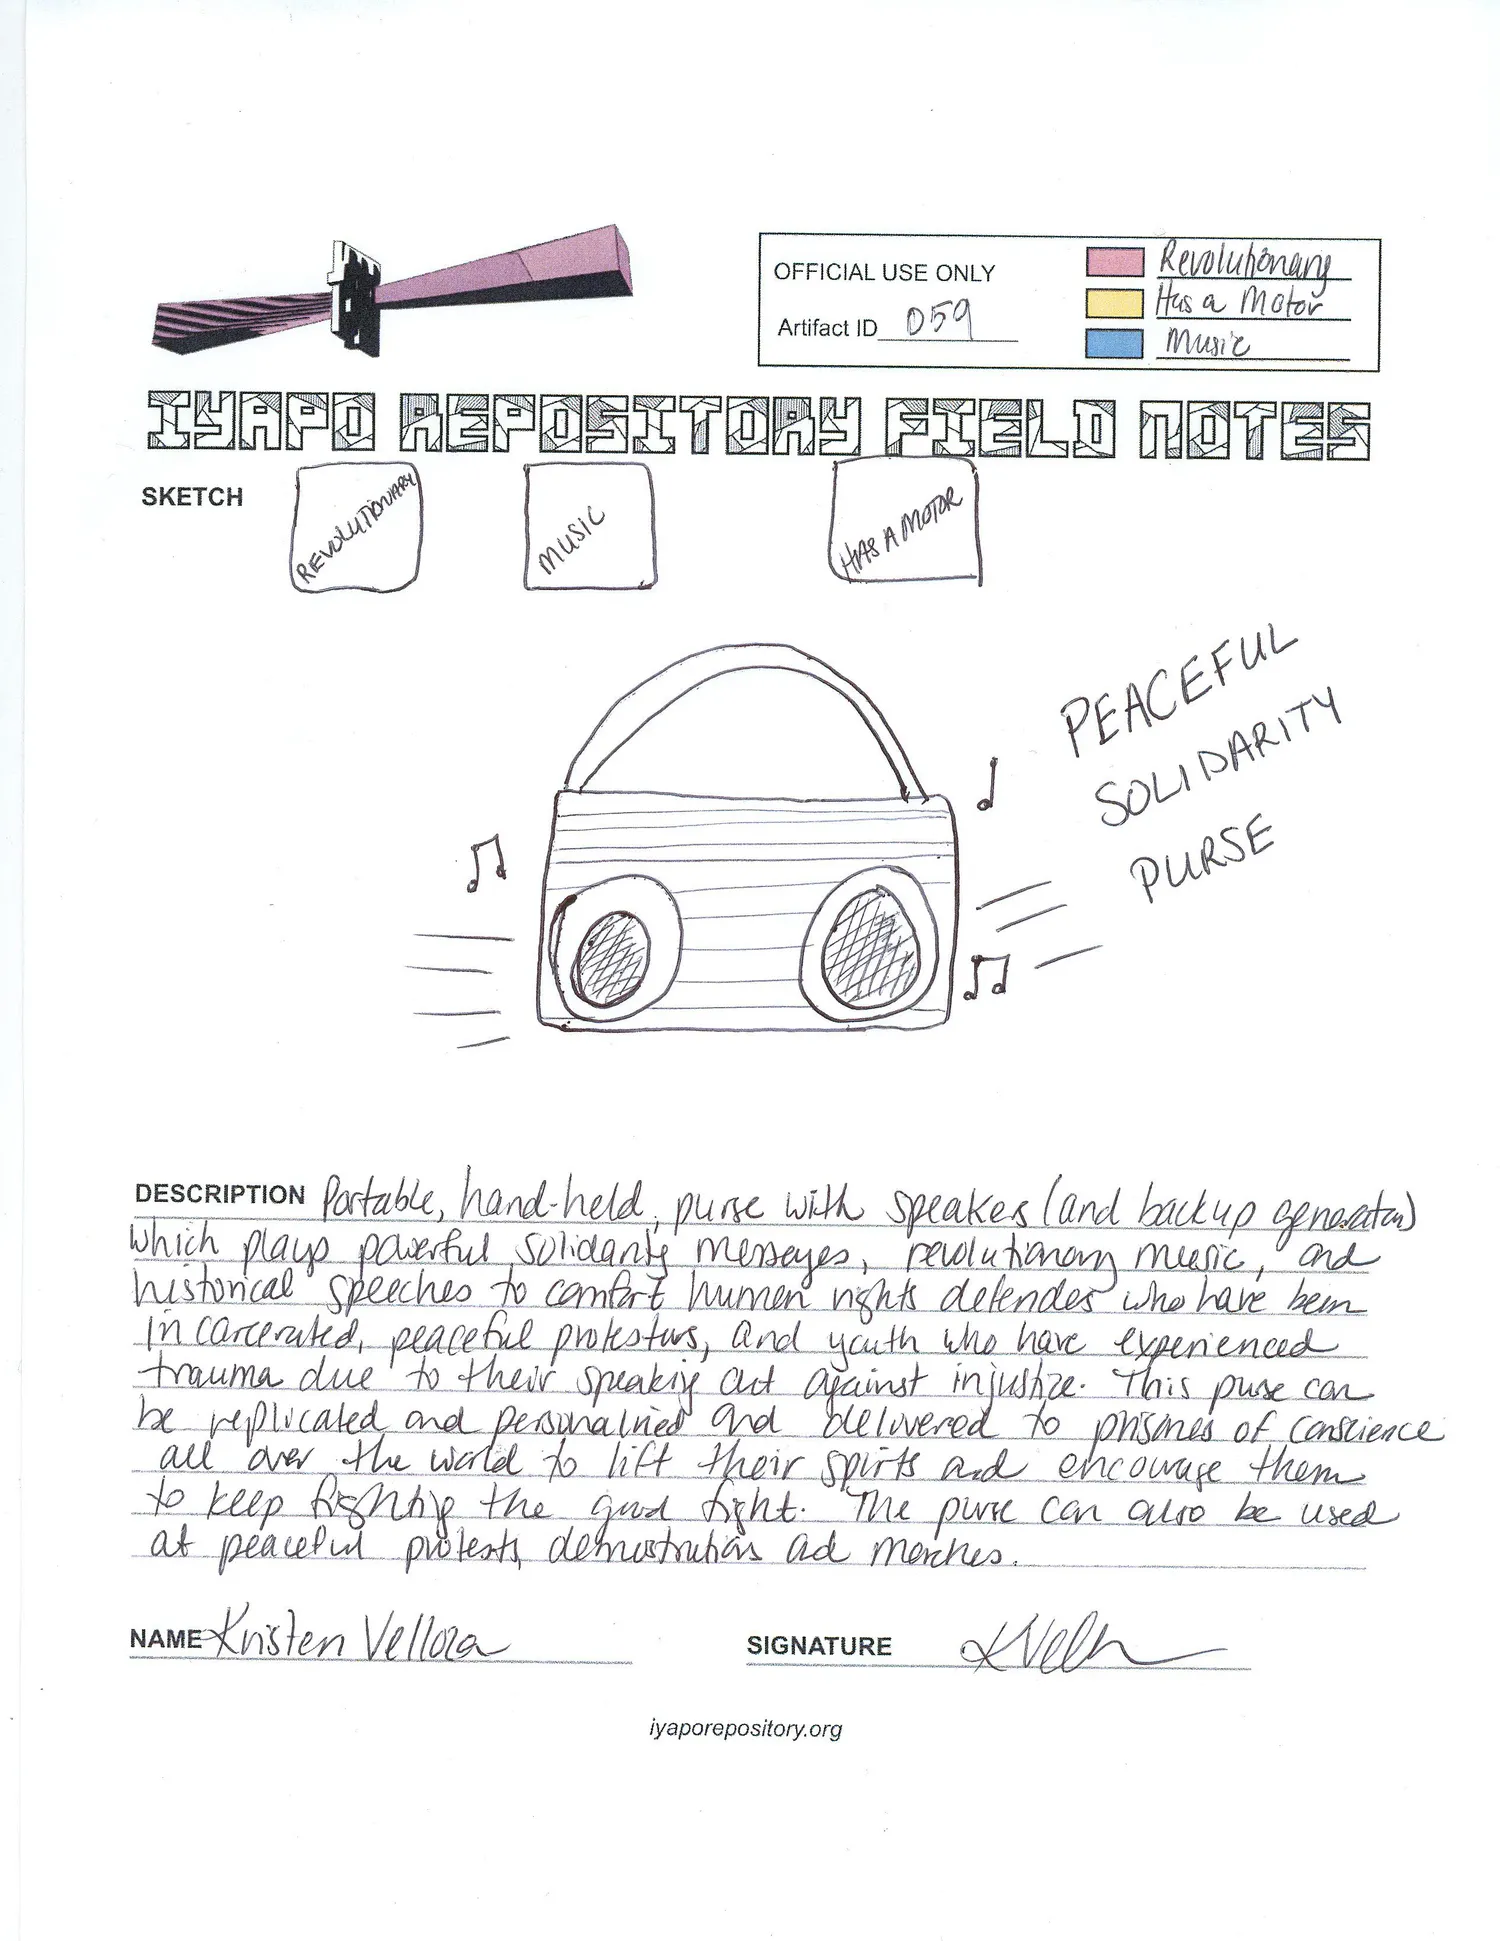 OFFICIAL USE ONLY
Artifact ID 059
Revolutionary
Has a Motor
Music
IYAPO REPOSITORY FIELD NOTES
SKETCH
REVOLUTIONARY
MUSIC
HAS A MOTOR
PEACEFUL
SOLIDARITY
PURSE
DESCRIPTION Portable, hand-held, purse with speakers (and backup generator)
which plays powerful solidarity messages, revolutionary music, and
historical speeches to comfort human rights defenders who have been
incarcerated, peaceful protestors, and youth who have experienced
trauma due to their speaking out against injustize. This purse can
be replicated and personalized and delivered to prisoners of conscience
all over the world to lift their spirits and encourage them
to keep fighting the good fight. The purse can also be used
at peaceful protests, demonstrations and marches.
NAME Kristen Velloza
SIGNATURE
iyaporepository.org